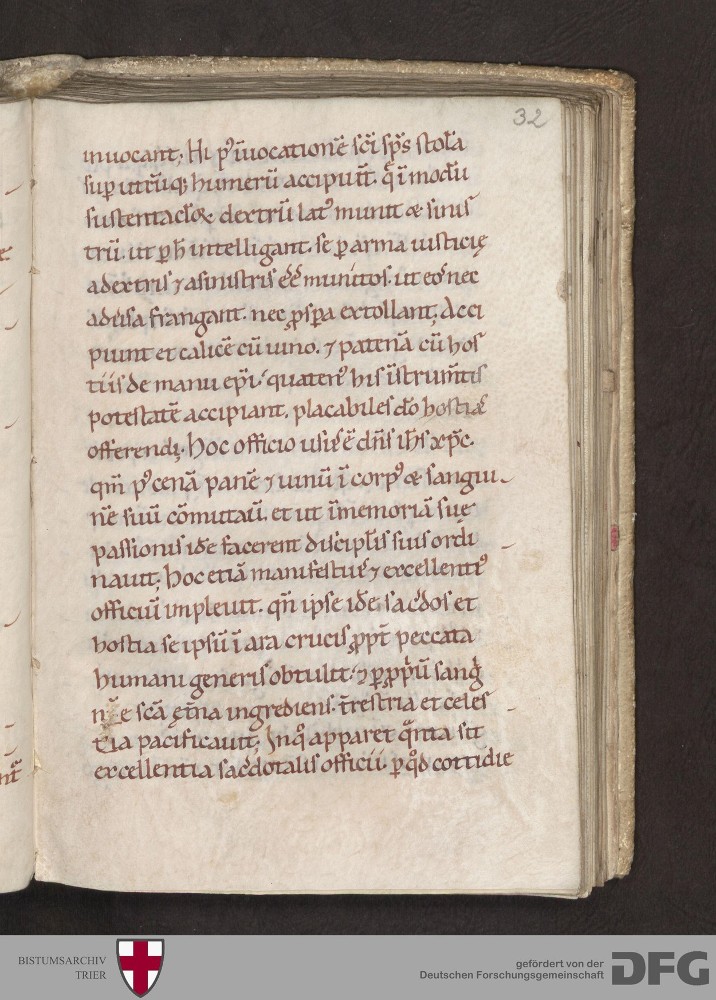 32
inuocant; Hi p᷒ īuocationē sc̄i sp̄s stol̄a
sup utrūq; humerū accipiuт̄. q̄ ī modū
sustentacl̄oꝝ dextrū lat᷒ munit & sinis
trū. ut ꝑ h̄ intelligant. se ꝑ arma iusticię
adextris ⁊ asinistris éé munitos. ut eos nec
aduersa frangant. nec ꝓspa extollant; Acci
piunt et calicē cū uino. ⁊ patenā cū hos
tiis de manu ep̄i. quaten᷒ his īstrum̄tis
potestatē accipiant. placabiles dō hostias
offerendi. Hoc officio usus ē dn̄s ih̄s xp̄c.
qm̄ p᷒ cenā panē ⁊ uinū ī corp᷒ & sangui
nē suū cōmutauit. et ut īmemoriā suę
passionis id̄e facerent discipl̄is suis ordi
nauit; hoc etiā manifestius ⁊ excellenti᷒
officiū impleuit. qn̄ ipse id̄e sac̄dos et
hostia se ipsū ī ara crucis ꝓpt̄ peccata
humani generis obtulit. ⁊ ꝑ ꝓpriū sang
nē sc̄a ęt̄na ingrediens. t̄restria et celes
tia pacificauit; Inq̊ apparet q̄nta sit
excellentia sac̄dotalis officii. ꝑ q̊d cottidie
BISTUMSARCHIV
TRIER
gefördert von der
Deutschen Forschungsgemeinschaft DFG